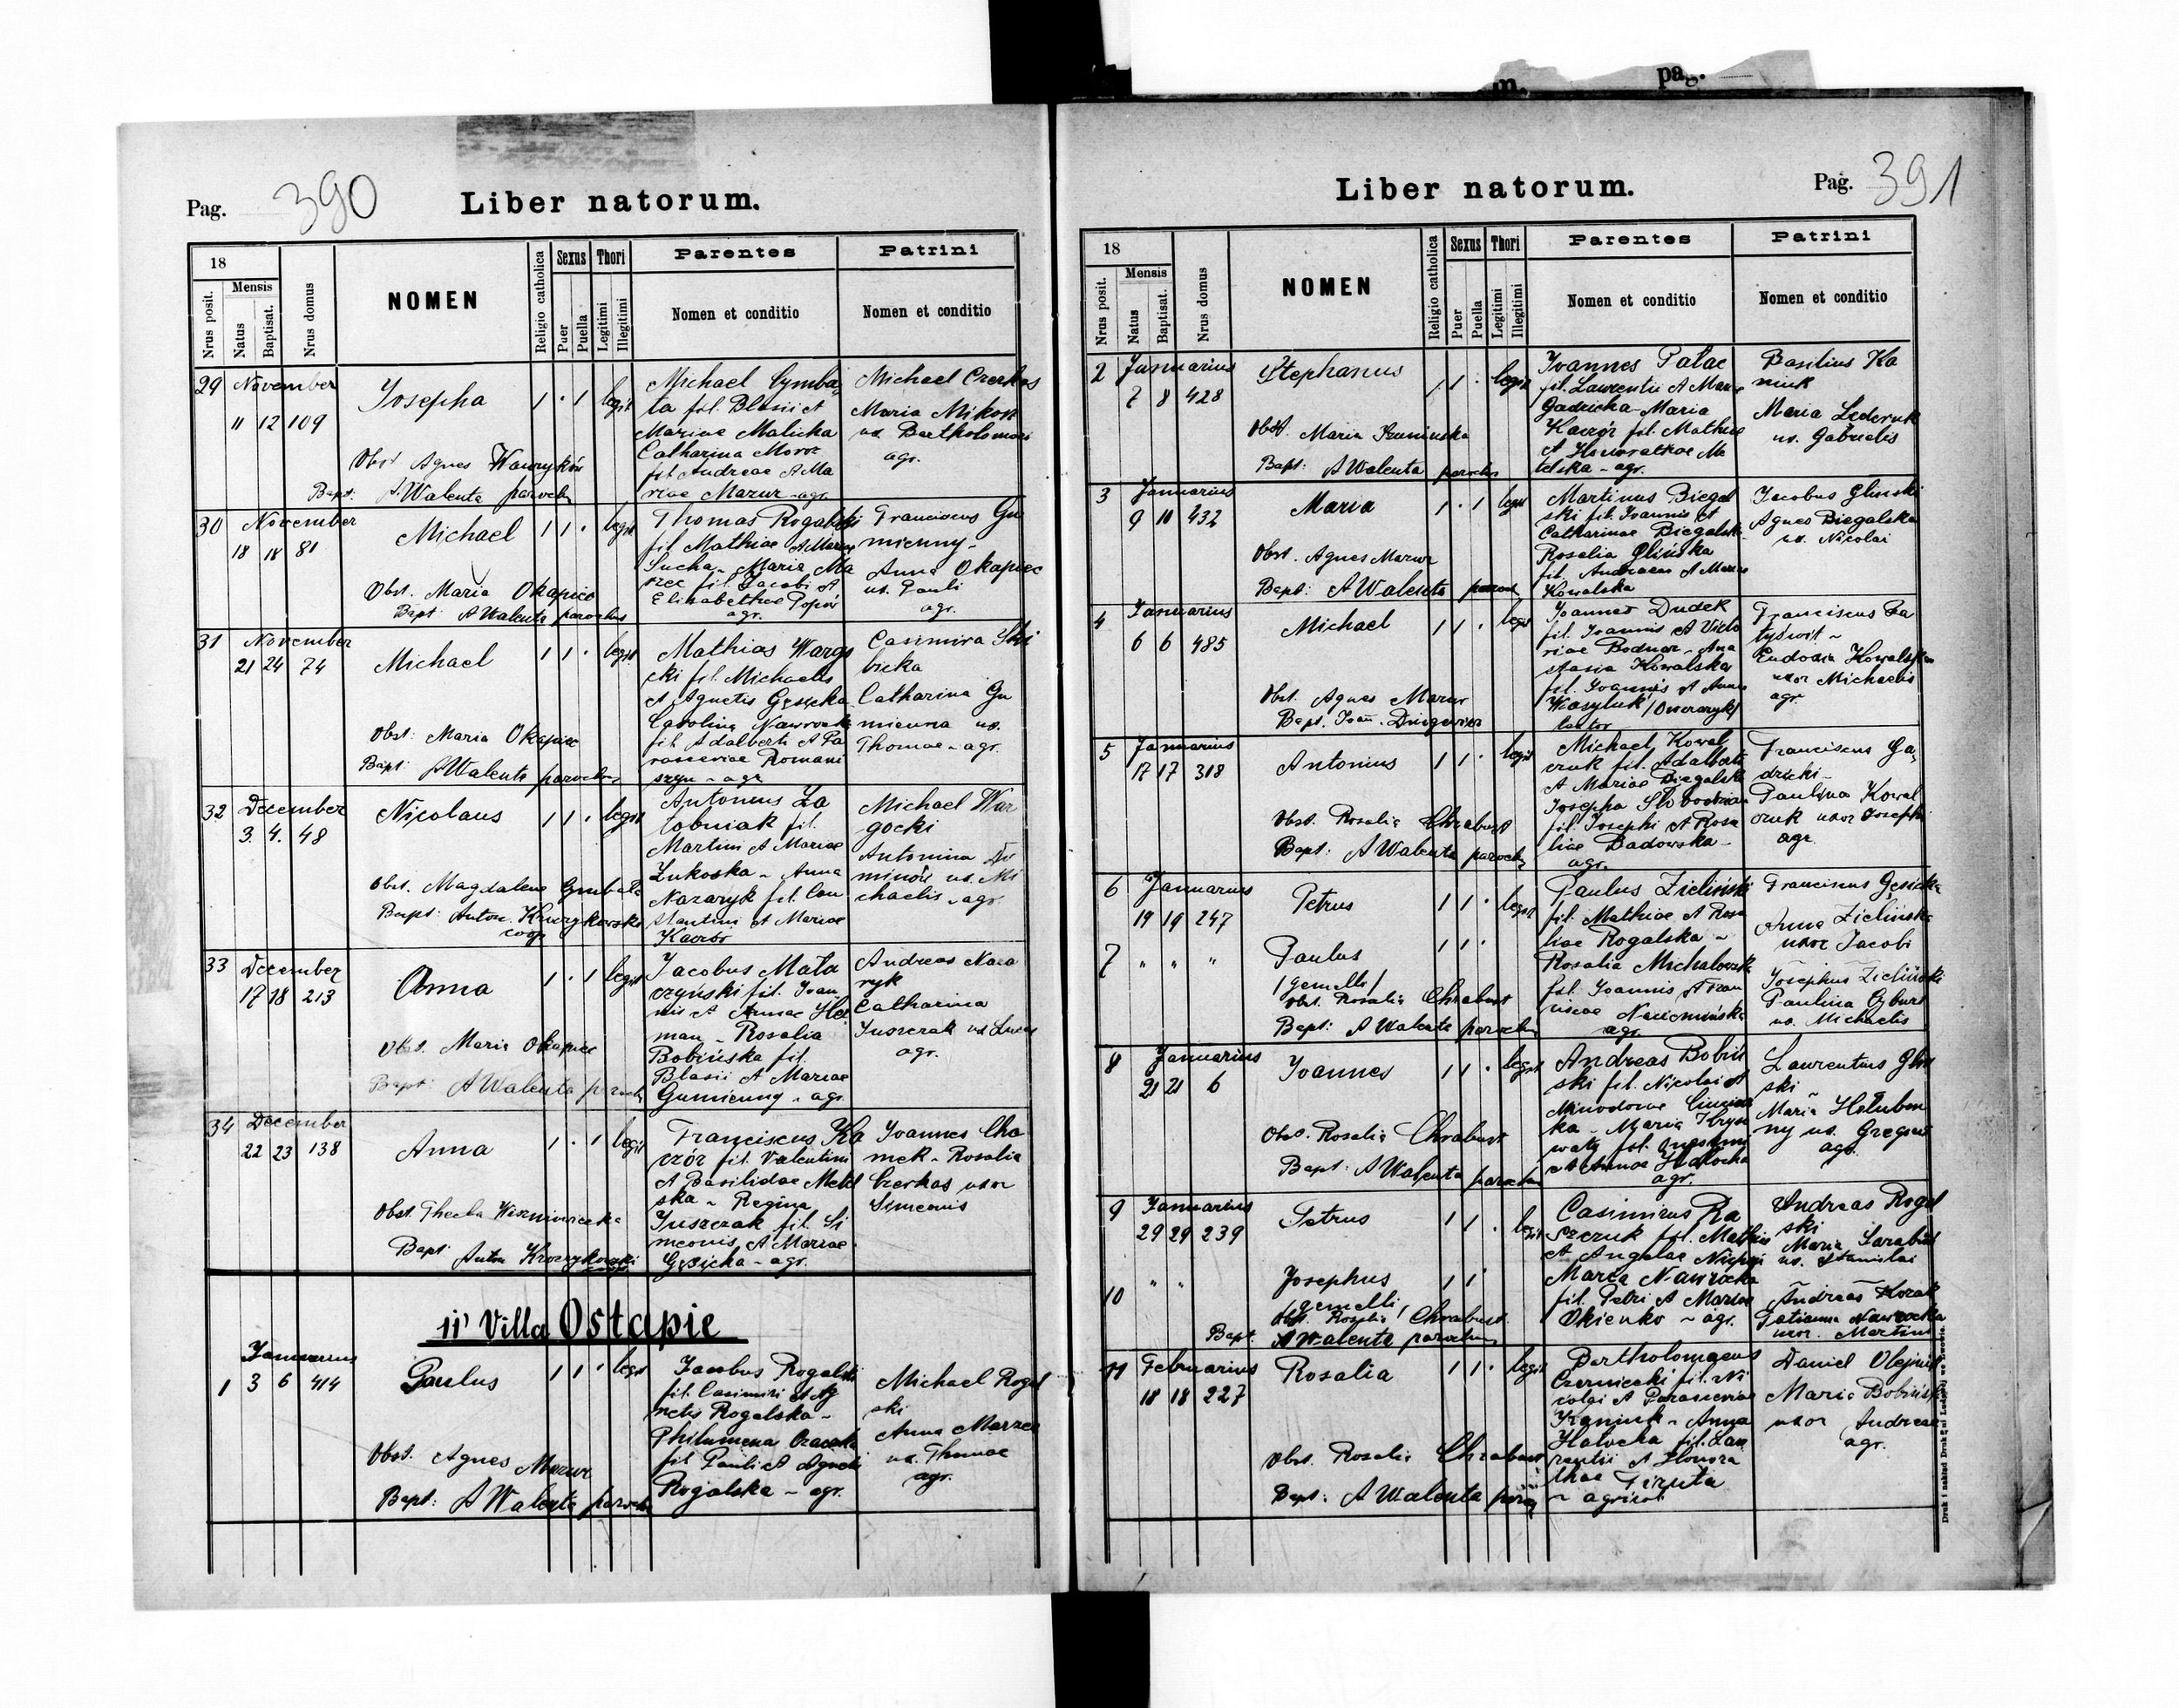 pag.
Pag. 390
Liber natorum.
18
Nrus posit.
Mensis
Natus
Baptisat.
Nrus domus
NOMEN
Religio catholica
Sexus
Puer
Puella
Thori
Legitimi
Illegitimi
Parentes
Nomen et conditio
Patrini
Nomen et conditio
29 November
11 12 109
Josepha
1 · 1 legit
Michael Cymba
ła fil. Blasii et
Mariae Malicka
Catharina Moroz
fil Andreae et Ma
riae Mazur - agr.
Michael Czerkas
Maria Mikoń
ux. Bartholomaei
agr.
Obst Agnes Wawryków
Bapt: A. Walenta paroch
30 November
18 18 81
Michael
1 1 · legit
Thomas Rogalski
fil Mathiae et Mariae
Sucha - Maria Ma
rzec fil. Jacobi et
Elisabethae Popiór
agr.
Franciscus Gu
mienny -
Anna Okapiec
ux. Pauli
agr.
Obst. Maria Okapiec
Bapt: A Walenta parochus
31 November
21 24 74
Michael
1 1 · legit
Mathias Wargo
cki fil. Michaelis
et Agnetis Gęsicka
Carolina Nawrocka
fil. Adalberti et Pa
rasceviae Romani
szyn - agr
Casimira Ski
bicka
Catharina Gu
mienna ux.
Thomae - agr.
Obst: Maria Okapiec
Bapt: A Walenta parochus
32 December
3. 4. 48
Nicolaus
1 1 · legit
Antonius Za
łobniak fil.
Martini et Mariae
Żukoska - Anna
Nazaryk fil. Con
stantini et Mariae
Kaczór
Michael War
gocki
Antonina Do
minów ux. Mi
chaelis - agr.
Obst. Magdalena Cymbała
Bapt: Anton. Kruczykowski
coop
33 December
17 18 213
Anna
1 · 1 legit
Jacobus Mała
czyński fil. Joan
nis et Annae Her
man - Rosalia
Bobińska fil.
Blasii et Mariae
Gumienny - agr
Andreas Naza
ryk
Catharina
Juszczak ux Lucae
agr.
Obst. Maria Okapiec
Bapt: A Walenta paroch
34 December
22 23 138
Anna
1 · 1 legit
Franciscus Ka
czór fil. Valentini
et Basilidae Meld
ska - Regina
Juszczak fil. Si
meonis et Mariae
Gęsicka - agr.
Joannes Cho
mek - Rosalia
Czerkas uxor
Simeonis
Obst. Thecla Wiszniowiecka
Bapt: Anton Kruczykowski
11' Villa Ostapie
Januarius
1 3 6 414
Paulus
1 1 · legit
Jacobus Rogalski
fil. Casimiri et Ag
netis Rogalska -
Philumena
fil Pauli et Agnetis
Rogalska - agr.
Michael Rogal
ski
Anna Marzec
ux. Thomae
agr.
Obst. Agnes Mazur
Bapt: A Walenta paroch
Liber natorum.
Pag. 391
18
Nrus posit.
Mensis
Natus
Baptisat.
Nrus domus
NOMEN
Religio catholica
Sexus
Puer
Puella
Thori
Legitimi
Illegitimi
Parentes
Nomen et conditio
Patrini
Nomen et conditio
2 Januarius
7 8 428
Stephanus
1 1 · legit
Joannes Palac
fil. Laurentii et Mariae
Gadzicka - Maria
Kaczór fil. Mathiae
et Honorathae Ma
telska - agr.
Basilius Ka
niuk
Maria
ux. Gabrielis
Obst. Maria
Bapt: A Walenta parochus
3 Januarius
9 10 432
Maria
1 · 1 legit
Martinus Biegal
ski fil. Joannis et
Catharinae Biegalska
Rosalia Glińska
fil. Andreae et Mariae
Kowalska
Jacobus Glinski
Agnes Biegalska
ux. Nicolai
Obst. Agnes Mazur
Bapt: A Walenta paroch
4 Januarius
6 6 485
Michael
1 1 · legit
Joannes Dudek
fil. Joannis et Victo
riae Bodnar - Ana
stasia Kowalska
fil. Joannis et Annae
Wasyluk
Franciscus Ra
tyswit -
Eudoxia Kowalska
uxor Michaelis
agr.
Obst. Agnes Mazur
Bapt. Joan.
5 Januarius
17 17 318
Antonius
1 1 · legit
Michael Kowal
czuk fil. Adalberti
et Mariae Biegalska
Josepha Słobodzian
fil. Josephi et Rosa
liae Badowska -
agr.
Franciscus Ga
dzicki -
Paulina Kowal
czuk uxor Josephi
agr.
Obst. Rosalia Chrabust
Bapt: A Walenta paroch
6 Januarius
19 19 247
Petrus
1 1 · legit
Paulus Zieliński
fil. Mathiae et Rosa
liae Rogalska -
Rosalia Michalowska
fil. Joannis et Fran
ciscae
agr.
Franciscus Gęsicka
Anna Zielińska
uxor Jacobi
7 " " "
Paulus
/gemelli/
1 1 ·
Josephus Zieliński
Paulina Cyburt
ux. Michaelis
Obst. Rosalia Chrabust
Bapt: A Walenta paroch
8 Januarius
21 21 6
Joannes
1 1 · legit
Andreas Bobiń
ski fil. Nicolai et
Minodorae
ka - Maria Kryso
waty fil.
et Annae Hałocha
agr.
Laurentius Gliń
ski
Maria Hołubow
ny ux. Gregorii
agr.
Obst. Rosalia Chrabust
Bapt: A Walenta paroch
9 Januarius
29 29 239
Petrus
1 1 · legit
Casimirus Ra
szczuk fil. Mathiae
et Angelae
Maria Nawrocka
fil. Petri et Mariae
Okienko - agr.
Andreas Rogal
ski
Maria Sarabun
ux. Stanislai
10 " "
Josephus
/gemelli/
1 1
Andreas Kozak
Tatianna Nawrocka
uxor. Martini
Obst. Rosalia Chrabust.
Bapt. A Walenta parochus
11 Februarius
18 18 227
Rosalia
1 1 · legit
Bartholomaeus
Czerniecki fil. Ni
colai et Parasceviae
Kaniuk - Anna
Hałocha fil. Lau
rentii et Honora
thae Firuta
- agricol.
Daniel Olejnik
Maria Bobińska
uxor Andreae
agr.
Obst. Rosalia Chrabust
Bapt: A Walenta paroch